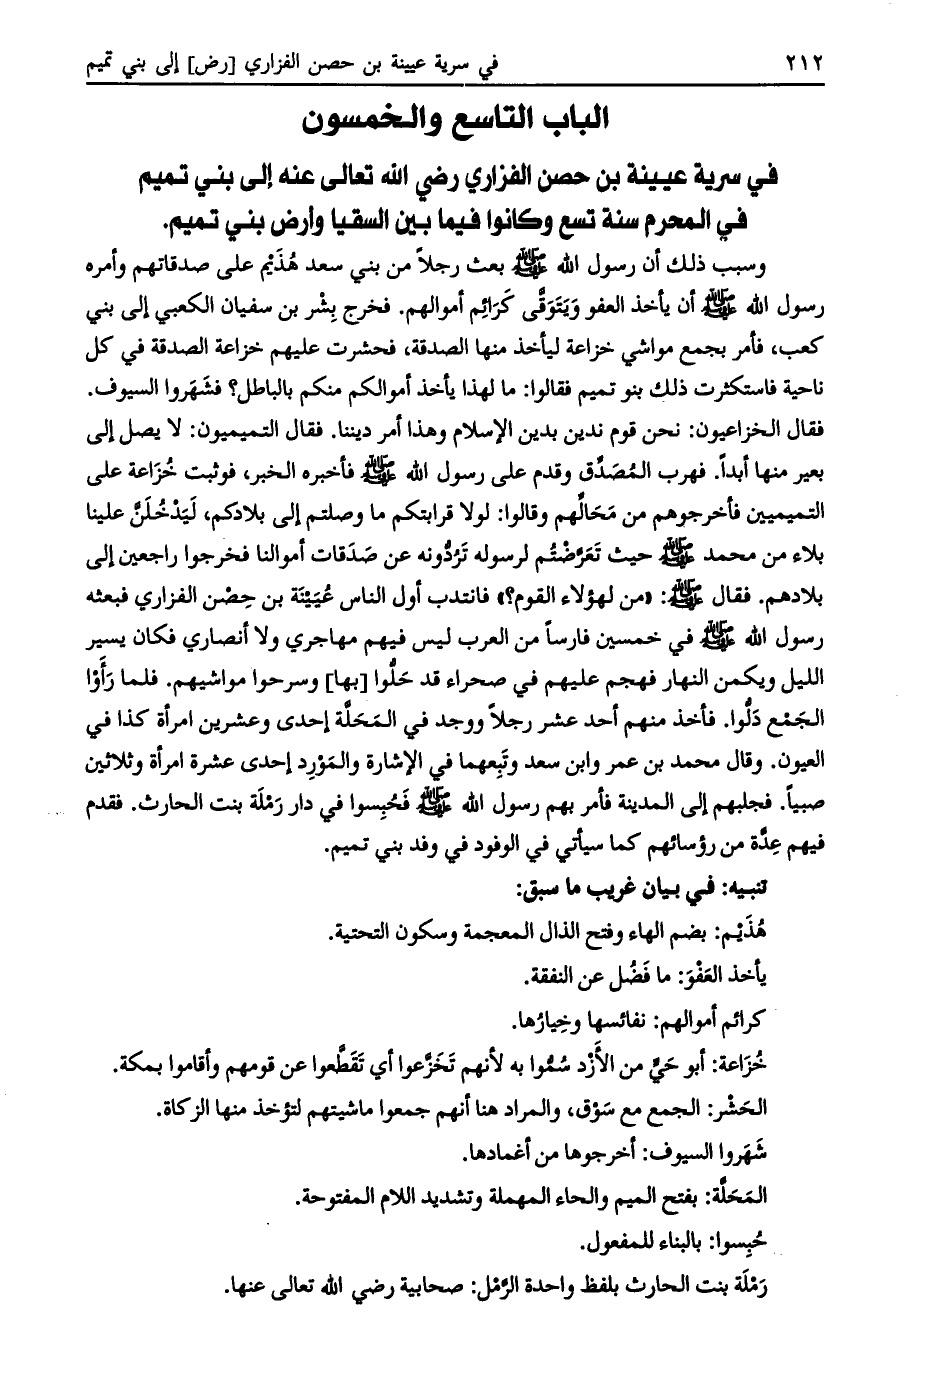 ٢١٢ في سرية عيينة بن حصن الفزاري [رض] إلى بني تميم
الباب التاسع والخمسون
في سرية عيينة بن حصن الفزاري رضي الله تعالى عنه إلى بني تميم
في المحرم سنة تسع وكانوا فيما بين السقيا وأرض بني تميم.
وسبب ذلك أن رسول الله ﷺ بعث رجلاً من بني سعد هُذَيْم على صدقاتهم وأمره
رسول الله ﷺ أن يأخذ العفو وَيَتَوَقَّى كَرَائِم أموالهم. فخرج بِشْر بن سفيان الكعبي إلى بني
كعب، فأمر بجمع مواشي خزاعة ليأخذ منها الصدقة، فحشرت عليهم خزاعة الصدقة في كل
ناحية فاستكثرت ذلك بنو تميم فقالوا: ما لهذا يأخذ أموالكم منكم بالباطل؟ فشَهَروا السيوف.
فقال الخزاعيون: نحن قوم ندين بدين الإسلام وهذا أمر ديننا. فقال التميميون: لا يصل إلى
بعير منها أبداً. فهرب المُصَدِّق وقدم على رسول الله ﷺ فأخبره الخبر، فوثبت خُزَاعة على
التميميين فأخرجوهم من مَحَالِّهم وقالوا: لولا قرابتكم ما وصلتم إلى بلادكم، لَيَدْخُلَنَّ علينا
بلاء من محمد ﷺ حيث تَعَرَّضْتُم لرسوله تَرُدُّونه عن صَدَقات أموالنا فخرجوا راجعين إلى
بلادهم. فقال ﷺ: «من لهؤلاء القوم؟» فانتدب أول الناس عُيَيْنَة بن حِصْن الفزاري فبعثه
رسول الله ﷺ في خمسين فارساً من العرب ليس فيهم مهاجري ولا أنصاري فكان يسير
الليل ويكمن النهار فهجم عليهم في صحراء قد حَلُّوا [بها] وسرحوا مواشيهم. فلما رَأَوْا
الجَمْع وَلُّوا. فأخذ منهم أحد عشر رجلاً ووجد في المَحَلَّة إحدى وعشرين امرأة كذا في
العيون. وقال محمد بن عمر وابن سعد وتَبِعهما في الإشارة والمَوْرِد إحدى عشرة امرأة وثلاثين
صبياً. فجلبهم إلى المدينة فأمر بهم رسول الله ﷺ فَحُبِسوا في دار رَمْلَة بنت الحارث. فقدم
فيهم عِدَّة من رؤسائهم كما سيأتي في الوفود في وفد بني تميم.
تنبيه: في بيان غريب ما سبق:
هُذَيْم: بضم الهاء وفتح الذال المعجمة وسكون التحتية.
يأخذ العَفْوَ: ما فَضُل عن النفقة.
كرائم أموالهم: نفائسها وخِيارُها.
خُزَاعة: أبو حَيٍّ من الأَزْد سُمُّوا به لأنهم تَخَزَّعوا أي تَقَطَّعوا عن قومهم وأقاموا بمكة.
الحَشْر: الجمع مع سَوْق، والمراد هنا أنهم جمعوا ماشيتهم لتؤخذ منها الزكاة.
شَهَروا السيوف: أخرجوها من أغمادها.
المَحَلَّة: بفتح الميم والحاء المهملة وتشديد اللام المفتوحة.
حُبِسوا: بالبناء للمفعول.
رَمْلَة بنت الحارث بلفظ واحدة الرَّمْل: صحابية رضي الله تعالى عنها.